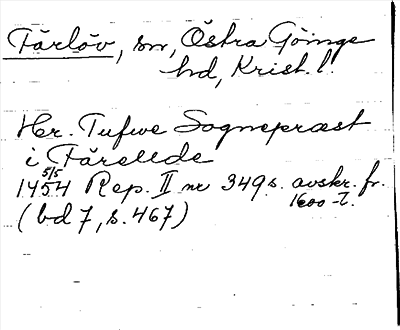 Färlöv, sn, Östra Göinge
hd, Krist. l.
Her. Tufwe Sognepræst
i Färellde
5/5
1454 Rep. II nr 349 s. avskr. fr.
1600-t.
(bd 7, s. 467)